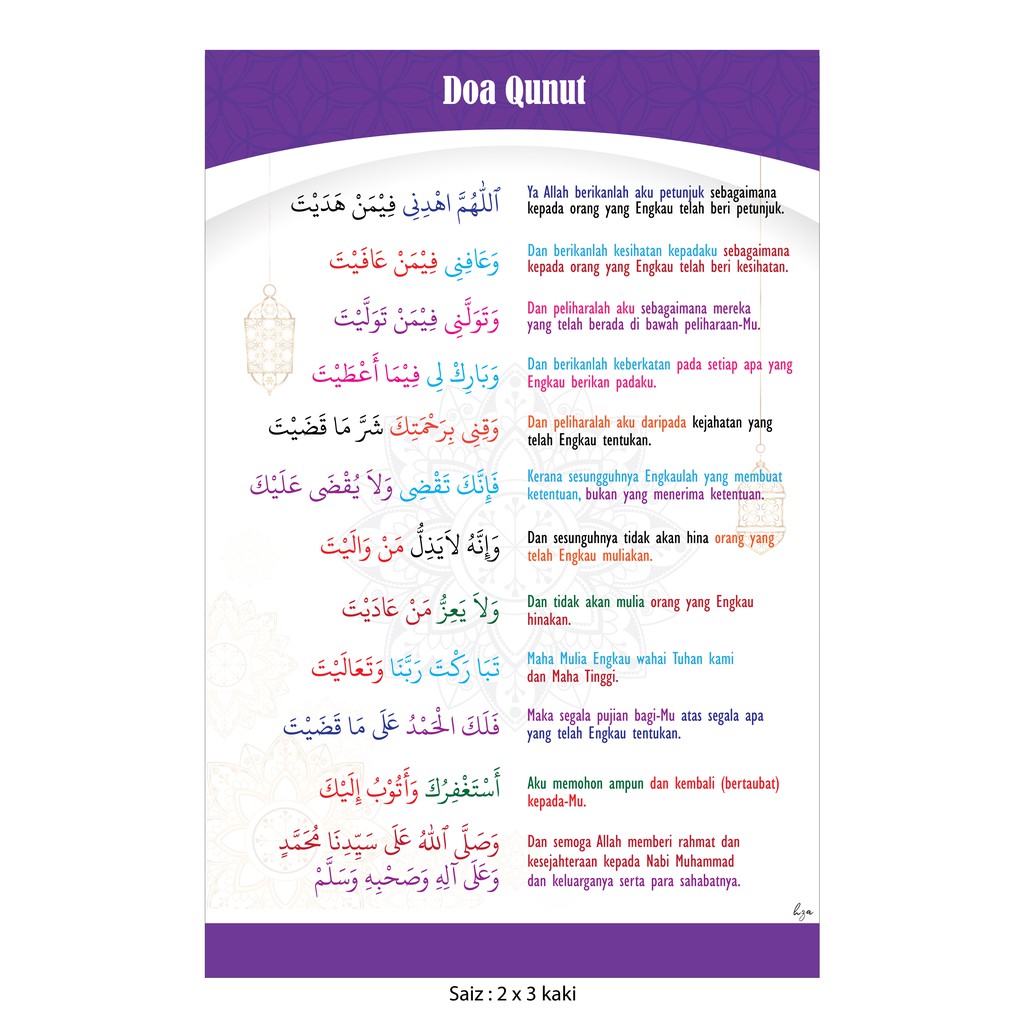 Doa Qunut
اَللّٰهُمَّ اهْدِنِى فِيْمَنْ هَدَيْتَ
Ya Allah berikanlah aku petunjuk sebagaimana
kepada orang yang Engkau telah beri petunjuk.
وَعَافِنِى فِيْمَنْ عَافَيْتَ
Dan berikanlah kesihatan kepadaku sebagaimana
kepada orang yang Engkau telah beri kesihatan.
وَتَوَلَّنِى فِيْمَنْ تَوَلَّيْتَ
Dan peliharalah aku sebagaimana mereka
yang telah berada di bawah peliharaan-Mu.
وَبَارِكْ لِى فِيْمَا أَعْطَيْتَ
Dan berikanlah keberkatan pada setiap apa yang
Engkau berikan padaku.
وَقِنِى بِرَحْمَتِكَ شَرَّ مَا قَضَيْتَ
Dan peliharalah aku daripada kejahatan yang
telah Engkau tentukan.
فَإِنَّكَ تَقْضِى وَلاَ يُقْضَى عَلَيْكَ
Kerana sesungguhnya Engkaulah yang membuat
ketentuan, bukan yang menerima ketentuan.
وَإِنَّهُ لاَيَذِلُّ مَنْ وَالَيْتَ
Dan sesunguhnya tidak akan hina orang yang
telah Engkau muliakan.
وَلاَ يَعِزُّ مَنْ عَادَيْتَ
Dan tidak akan mulia orang yang Engkau
hinakan.
تَبَا رَكْتَ رَبَّنَا وَتَعَالَيْتَ
Maha Mulia Engkau wahai Tuhan kami
dan Maha Tinggi.
فَلَكَ الْحَمْدُ عَلَى مَا قَضَيْتَ
Maka segala pujian bagi-Mu atas segala apa
yang telah Engkau tentukan.
أَسْتَغْفِرُكَ وَأَتُوْبُ إِلَيْكَ
Aku memohon ampun dan kembali (bertaubat)
kepada-Mu.
وَصَلَّى ٱللهُ عَلَى سَيِّدِنَا مُحَمَّدٍ
وَعَلَى آلِهِ وَصَحْبِهِ وَسَلَّمْ
Dan semoga Allah memberi rahmat dan
kesejahteraan kepada Nabi Muhammad
dan keluarganya serta para sahabatnya.
hza
Saiz : 2 x 3 kaki